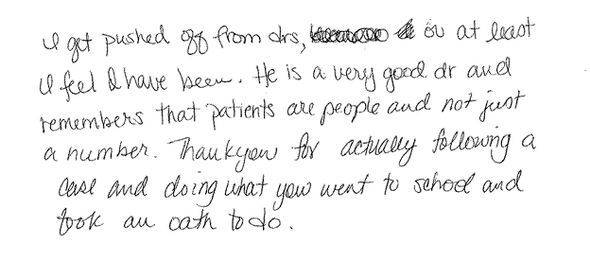 I get pushed off from drs, or at least
I feel I have been. He is a very good dr and
remembers that patients are people and not just
a number. Thankyou for actually following a
case and doing what you went to school and
took an oath to do.